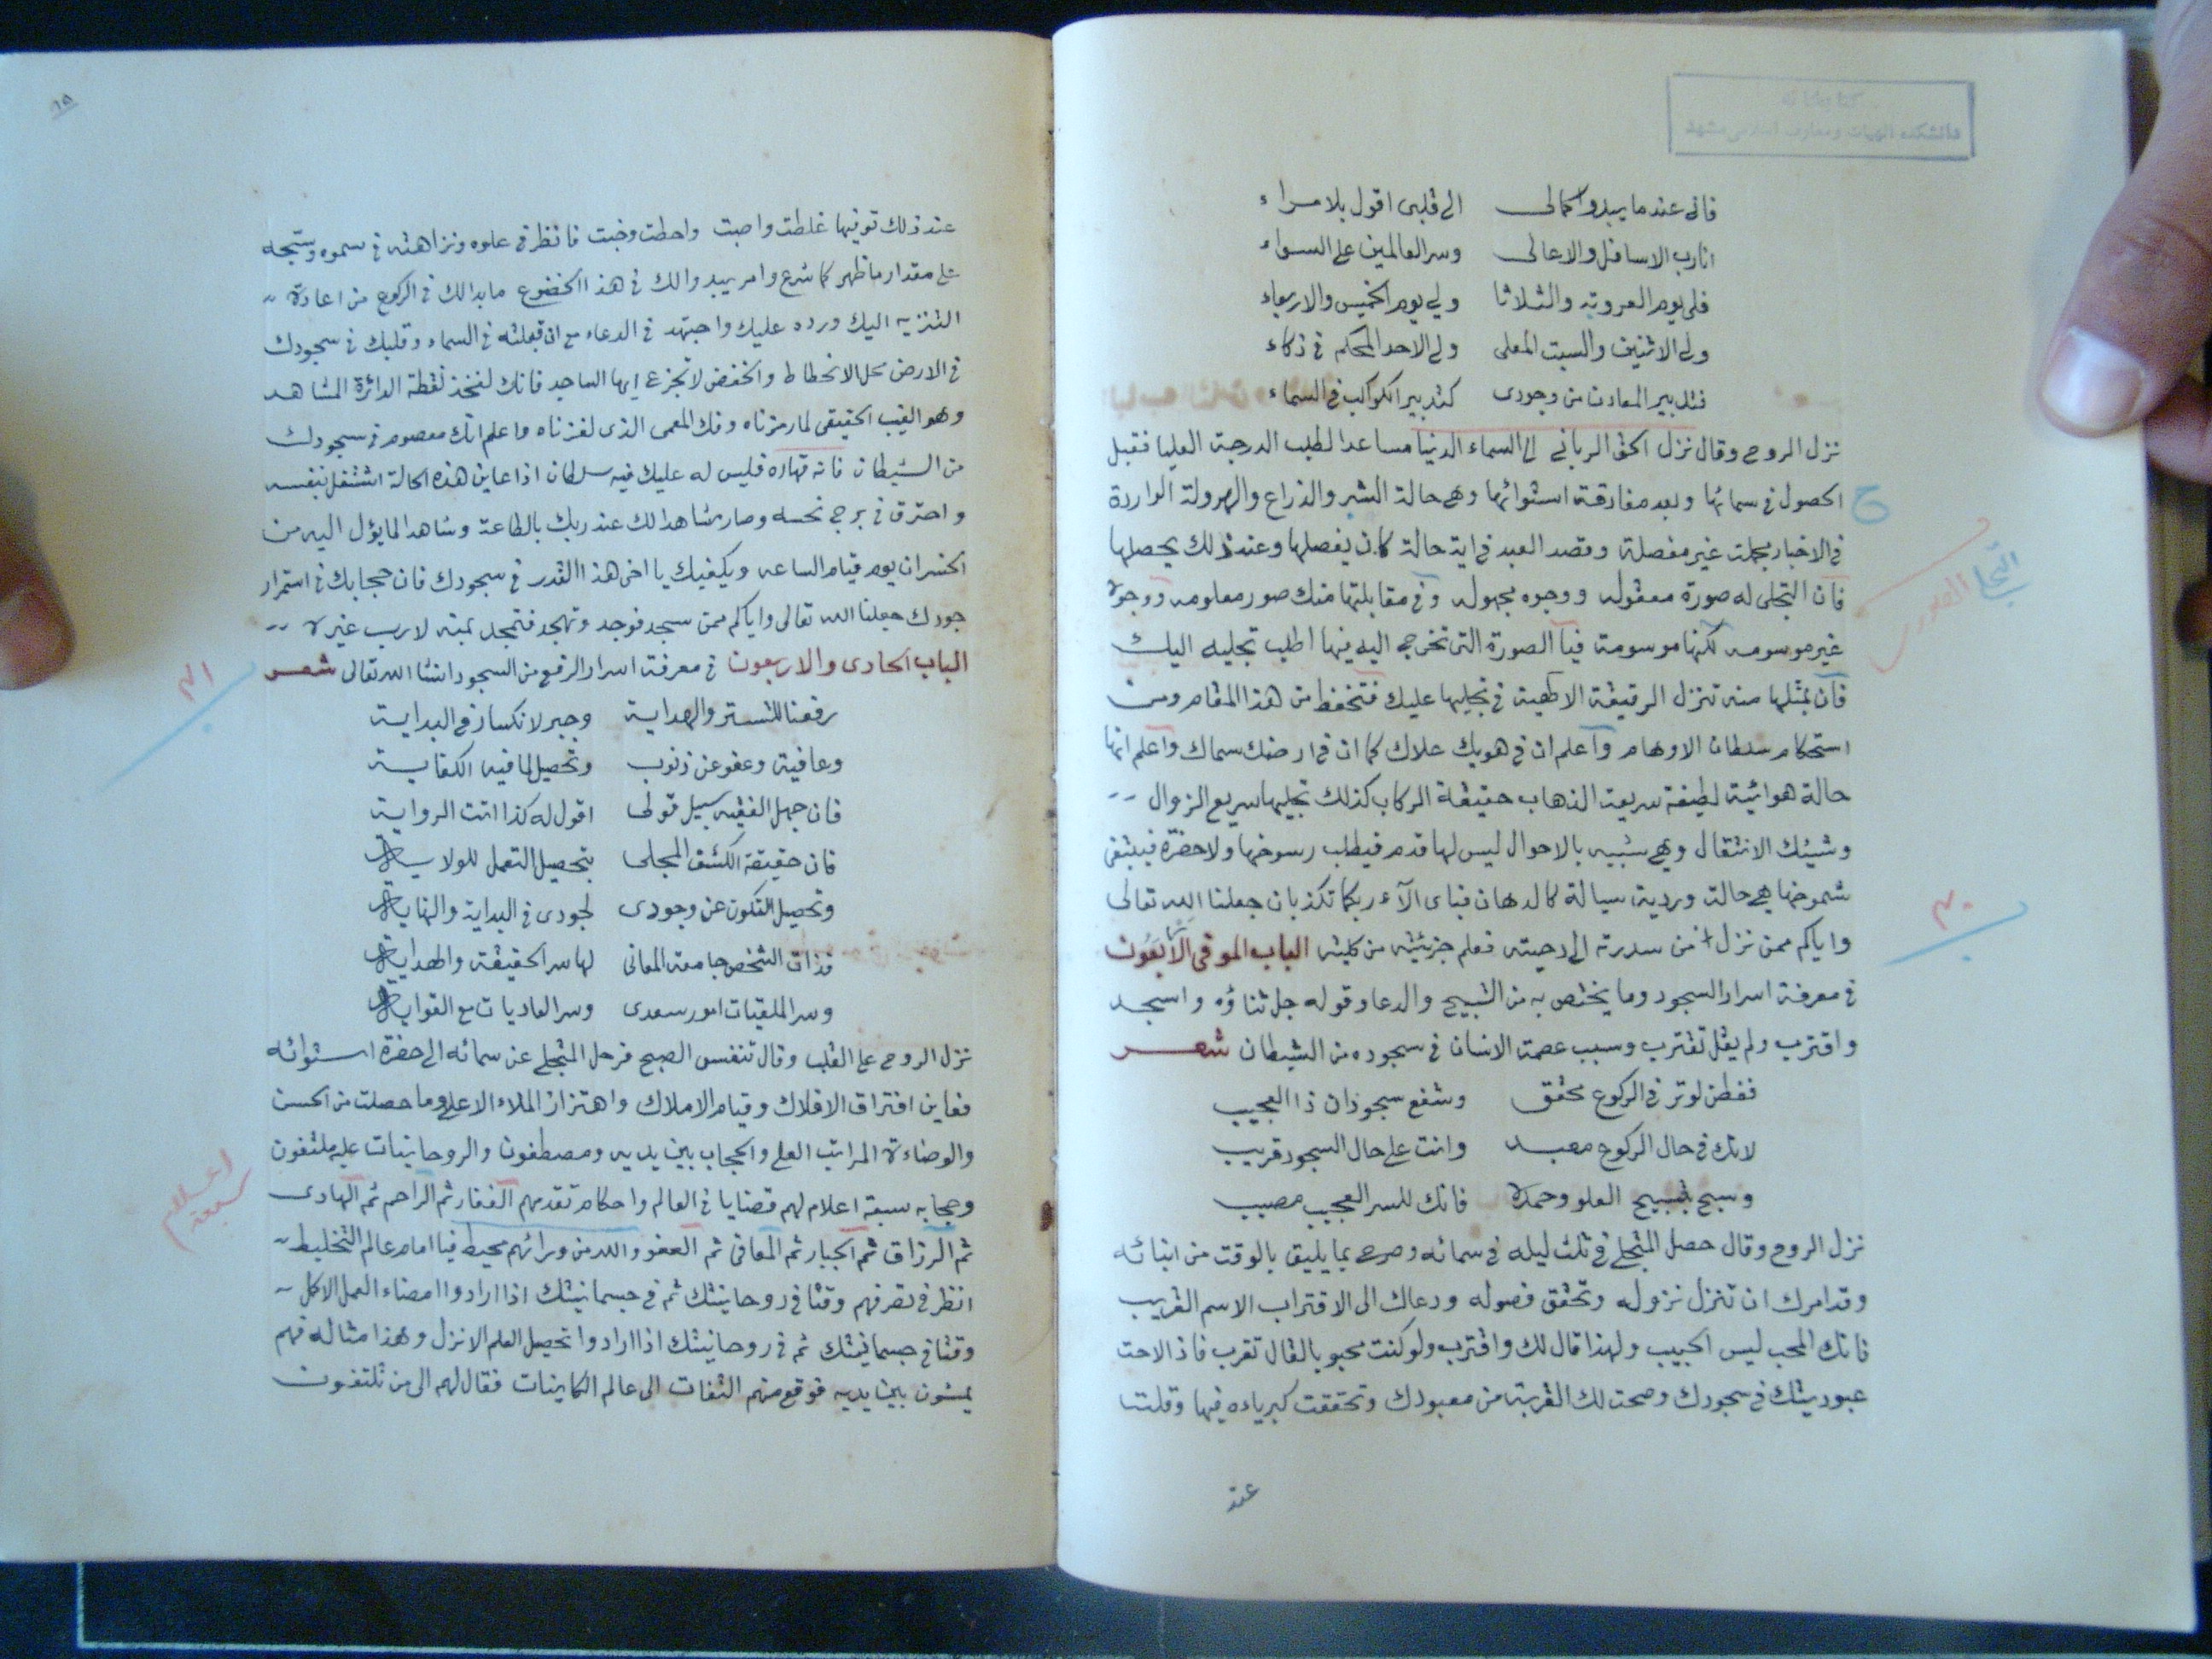 فانى عندما يبدو كمالى الى قلبى اقول بلا مراء
انا رب الاسافل والاعالى وسر العالمين على السواء
فلى يوم العروبة والثلاثا ولى يوم الخميس والاربعاء
ولى الاثنين والسبت المعلى ولى الاحد المحكم فى ذكاء
فتدبير المعادن من وجودى كتدبير الكواكب فى السماء
نزل الروح وقال نزل الحق الربانى الى السماء الدنيا مساعدا لطلب الدرجة العليا فقبل
الحصول فى سمائها وبعد مفارقة استوائها وهى حالة الشبر والذراع والهرولة الواردة
فى الاخبار مجملة غير مفصلة وقصد العبد فى اية حالة كان يفصلها وعند ذلك يحصلها
فان التجلى له صورة معقوله ووجوه مجهوله وفى مقابلتها منك صور معلومه ووجوه
غير موسومه لكنها موسومة فيا الصورة التى تخرج اليه فيها اطلب تجليه اليك
فان بمثلها منه تنزل الرقيقة الالهية فى تجليها عليك فتحفظ من هذا المقام ومن
استحكام سلطان الاوهام واعلم ان فى هويك علاك كما ان فى ارضك سماك واعلم انها
حالة هوائية لطيفة سريعة الذهاب حقيقة الركاب كذلك تجليها سريع الزوال
وشيك الانتقال وهى شبيه بالاحوال ليس لها قدم فيطلب رسوخها ولا حضرة فيبتغى
شموخها هى حالة وردية سيالة كالدهان فباى الآء ربكما تكذبان جعلنا الله تعالى
واياكم ممن نزل من سدرته الى دحيته فعلم جزئيته من كليته الباب الموفى الاربعون
فى معرفة اسرار السجود وما يختص به من التسبيح والدعا وقوله جل ثناؤه واسجد
واقترب ولم يقل تقترب وسبب عصمة الانسان فى سجوده من الشيطان شعر
ففطن لوتر فى الركوع محقق وشفع سجود ان ذا العجيب
لانك فى حال الركوع معبد وانت على حال السجود قريب
وسبح بتسبيح العلو وحمده فانك للسر العجيب مصيب
نزل الروح وقال حصل المتجلى فى ثلث ليله فى سمائه وصرح بما يليق بالوقت من انبائه
وقد امرك ان تنزل نزوله وتحقق فصوله ودعاك الى الاقتراب الاسم القريب
فانك المحب ليس الحبيب ولهذا قال لك واقترب ولو كنت محبوبا لقال تقرب فاذا لاحت
عبوديتك فى سجودك وصحت لك القربة من معبودك وتحققت كبرياءه فيها وقلت
عند
عند ذلك توفيها غلطت واصبت واحطت وخبت فانظر فى علوه ونزاهته فى سموه
على مقدار ما ظهر كما شرع وامر يبدو لك فى هذا الخضوع ما بدا لك فى الركوع من اعادة
التنزيه اليك ورده عليك واجتهد فى الدعاء مع ان قبلته فى السماء وقلبك فى سجودك
فى الارض محل الانحطاط والخفض لا تجزع ايها الساجد فانك لفخذ نقطة الدائرة المشاهد
وهو الغيب الحقيقى لما رمزناه وفك المعمى الذى لغزناه واعلم انك معصوم فى سجودك
من الشيطان فانه قهاره فليس له عليك فيه سلطان اذا عاين هذه الحالة اشتغل بنفسه
واحترق فى برج نحسه وصار مشاهدا لك عند ربك بالطاعة وشاهد لما يؤل اليه من
الخسران يوم قيام الساعه ويكفيك يا اخى هذا القدر فى سجودك فان حجابك فى استمرار
جودك جعلنا الله تعالى واياكم ممن سجد فوجد وتهجد فتمجد بمنه لا رب غيره
الباب الحادى والاربعون فى معرفة اسرار الرفع من السجود انشا الله تعالى شعر
رفعنا للتستر والهداية وجبر لانكسار فى البداية
وعافية وعفو عن ذنوب وتحصيل لما فيه الكفاية
فان جهل الفقيه سبيل قولى اقول له كذا اتت الرواية
فان حقيقة الكشف المجلى بتحصيل التعمل للولاية
وتحصيل التكون عن وجودى لجودى فى البداية والنهاية
فذات الشخص جامعة المعانى لها سر الحقيقة والهداية
وسر الملقيات امور سعدى وسر العاديات مع الغواية
نزل الروح على القلب وقال تنفس الصبح فرحل المتجلى عن سمائه الى حضرة استوائه
فعاين افتراق الافلاك وقيام الاملاك واهتزاز الملاء الاعلى وما حصلت من الحسن
والوضاءة المراتب العلى والحجاب بين يديه ومصطفون والروحانيات عليه ملتفون
وحجابه سبعة اعلام لهم قضايا فى العالم واحكام تقدمهم الغفار ثم الراحم ثم الهادى
ثم الرزاق ثم الجبار ثم المعافى ثم العفو والله من ورائهم محيط فيا امام عالم التخليط
انظر فى تصرفهم وقتا فى روحانيتك ثم فى جسمانيتك اذا ارادوا امضاء العمل الاكل
وقتا فى جسمانيتك ثم فى روحانيتك اذا ارادوا تحصيل العلم الانزل وهذا مثاله فهم
يمشون بين يديه فوقع منهم التفات الى عالم الكاينات فقال لهم الى من تلتفون
٤٠
٤١
اعلام
سبعة